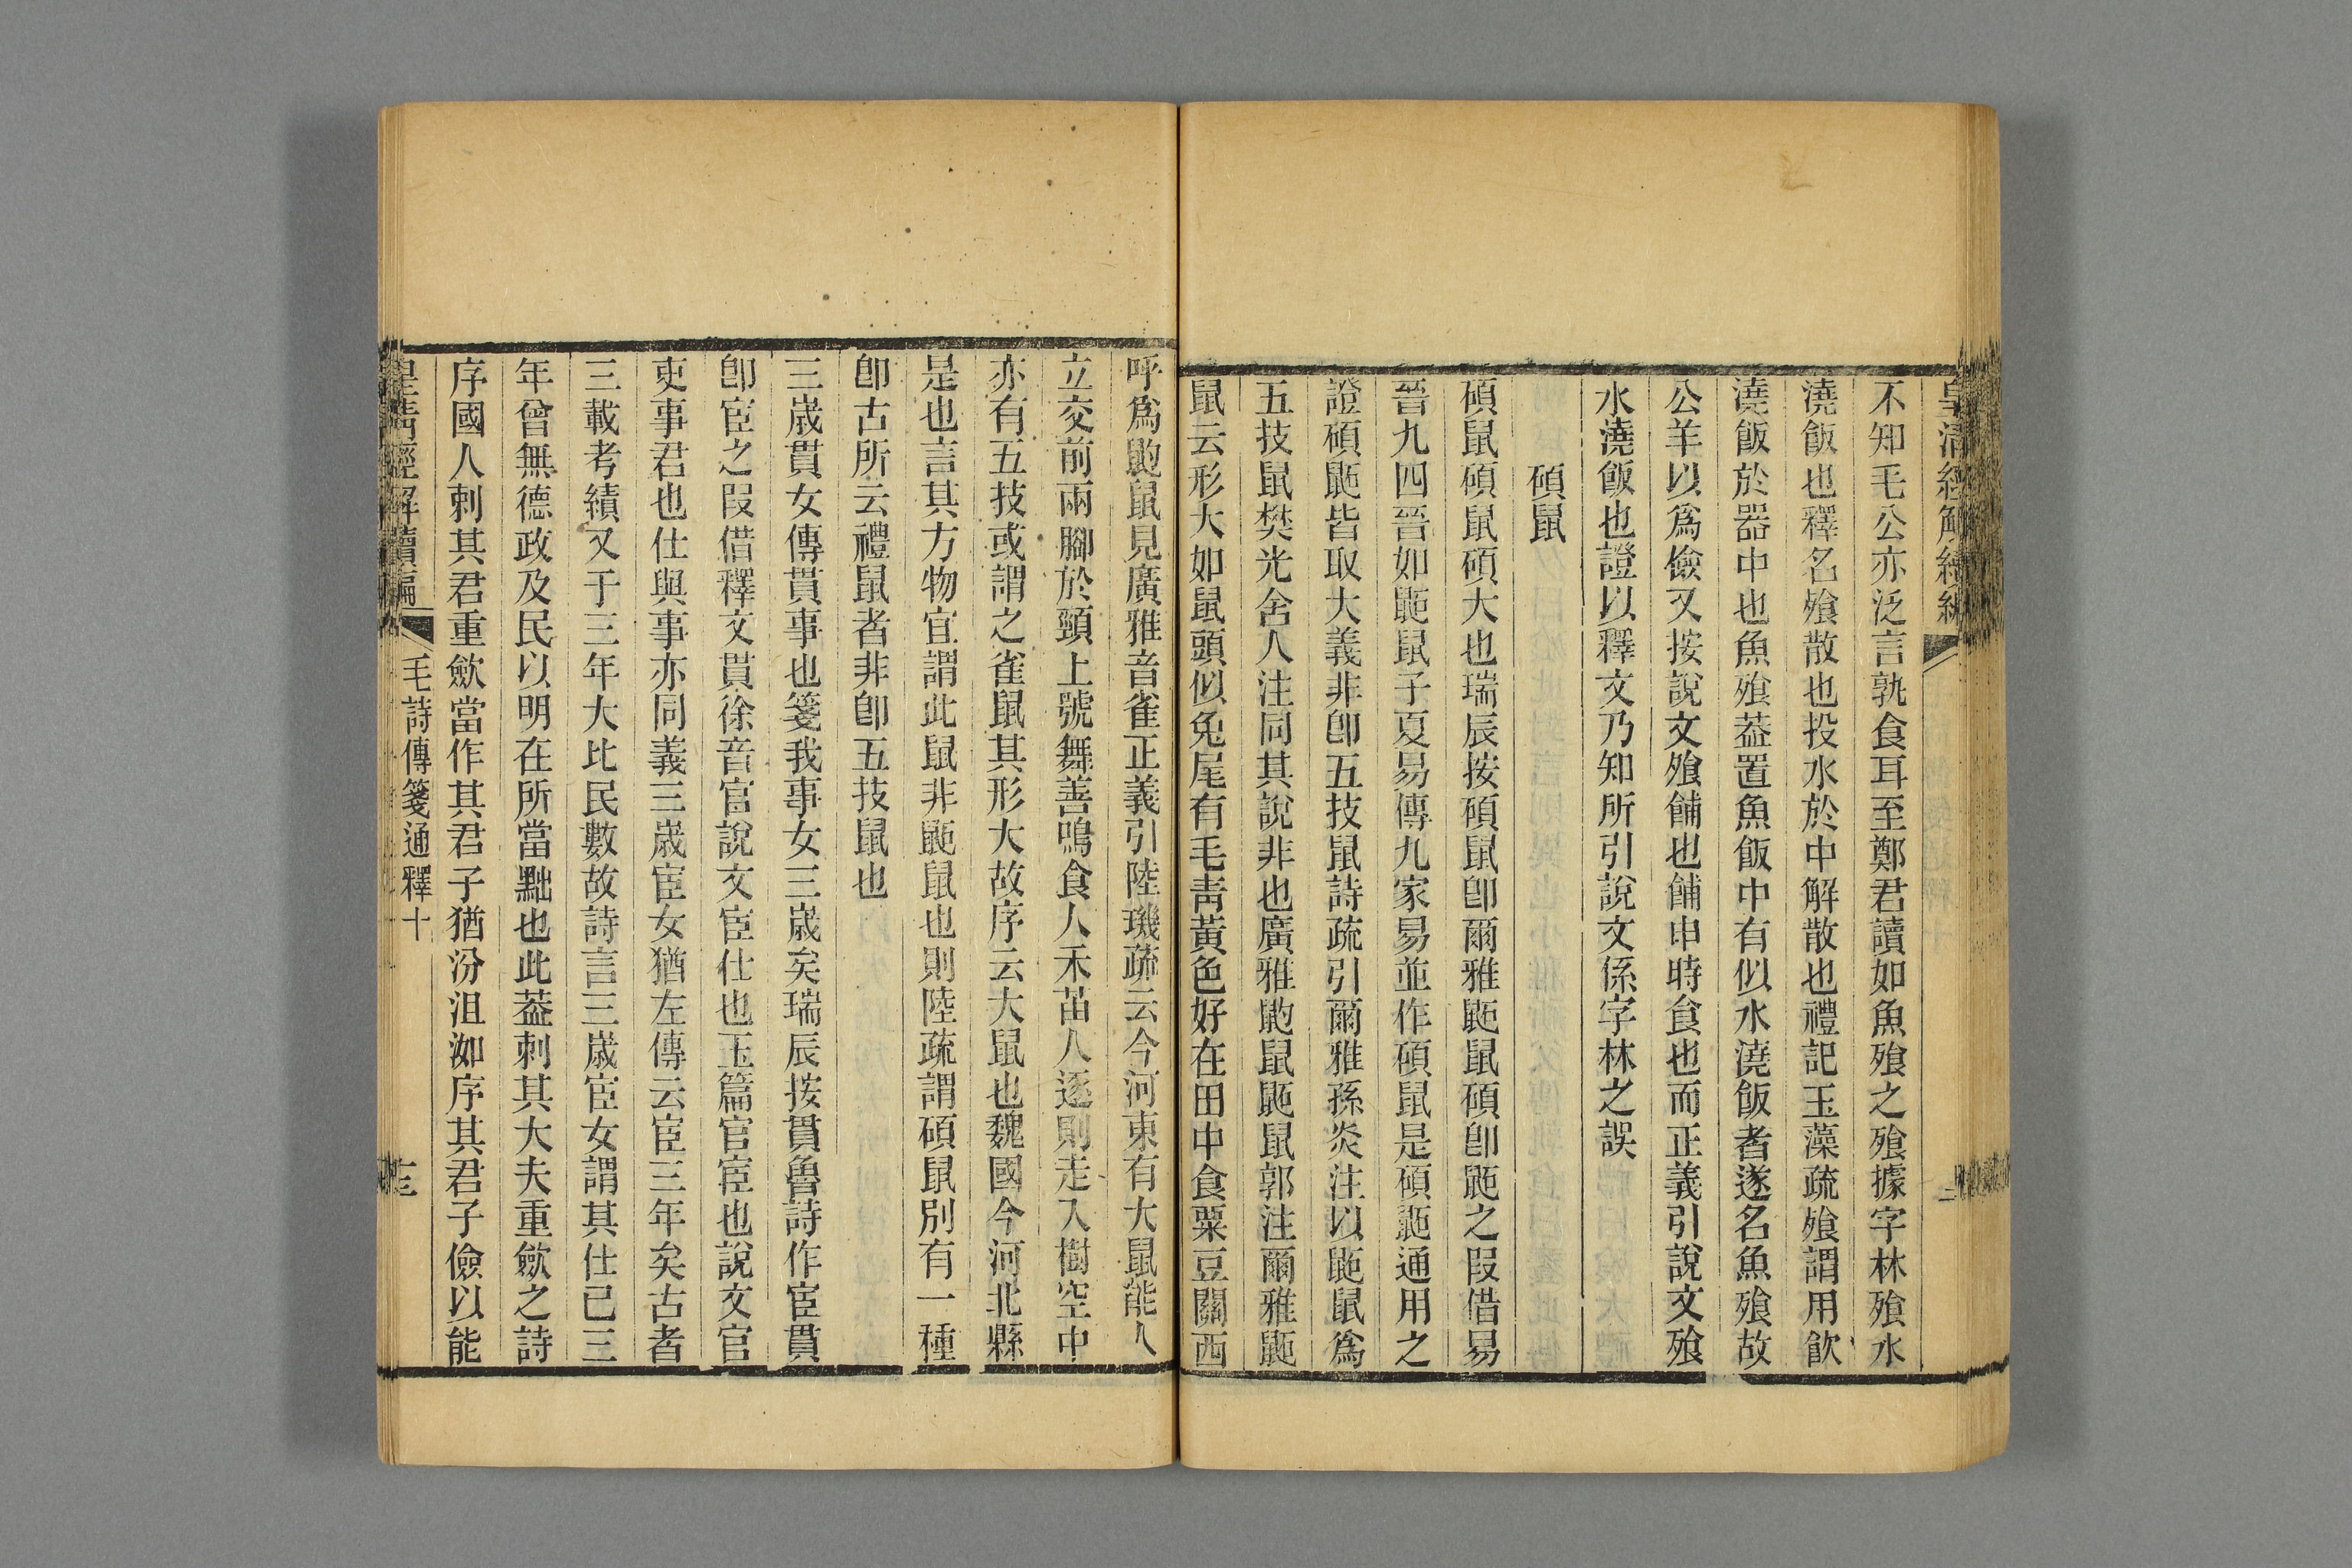 皇清經解續編
不知毛公亦泛言孰食耳至鄭君讀如魚飱之飱據字林飱水
澆飯也釋名飱散也投水於中解散也禮記玉藻疏飱謂用飮
澆飯於器中也魚飱葢置魚飯中有似水澆飯者遂名魚飱故
公羊以爲儉又按說文飱餔也餔申時食也而正義引說文飱
水澆飯也證以釋文乃知所引說文係字林之誤
碩鼠
碩鼠碩鼠碩大也瑞辰按碩鼠卽爾雅鼫鼠碩卽鼫之叚借易
晉九四晉如鼫鼠子夏易傳九家易並作碩鼠是碩鼫通用之
證碩鼫皆取大義非卽五技鼠詩疏引爾雅孫炎注以鼫鼠爲
五技鼠樊光舍人注同其說非也廣雅鼩鼠鼫鼠郭注爾雅鼫
鼠云形大如鼠頭似兔尾有毛靑黃色好在田中食粟豆關西
呼爲鼩鼠見廣雅音雀正義引陸璣疏云今河東有大鼠能人
立交前兩腳於頸上號舞善鳴食人禾苗人逐則走入樹空中
亦有五技或謂之雀鼠其形大故序云大鼠也魏國今河北縣
是也言其方物宜謂此鼠非鼫鼠也則陸疏謂碩鼠別有一種
卽古所云禮鼠者非卽五技鼠也
三歲貫女傳貫事也箋我事女三歲矣瑞辰按貫魯詩作宦貫
卽宦之叚借釋文貫徐音官說文宦仕也玉篇官宦也說文官
吏事君也仕與事亦同義三歲宦女猶左傳云宦三年矣古者
三載考績又于三年大比民數故詩言三歲宦女謂其仕已三
年曾無德政及民以明在所當黜也此葢刺其大夫重斂之詩
序國人刺其君重斂當作其君子猶汾沮洳序其君子儉以能
皇淸經解續編
毛詩傳箋通釋十